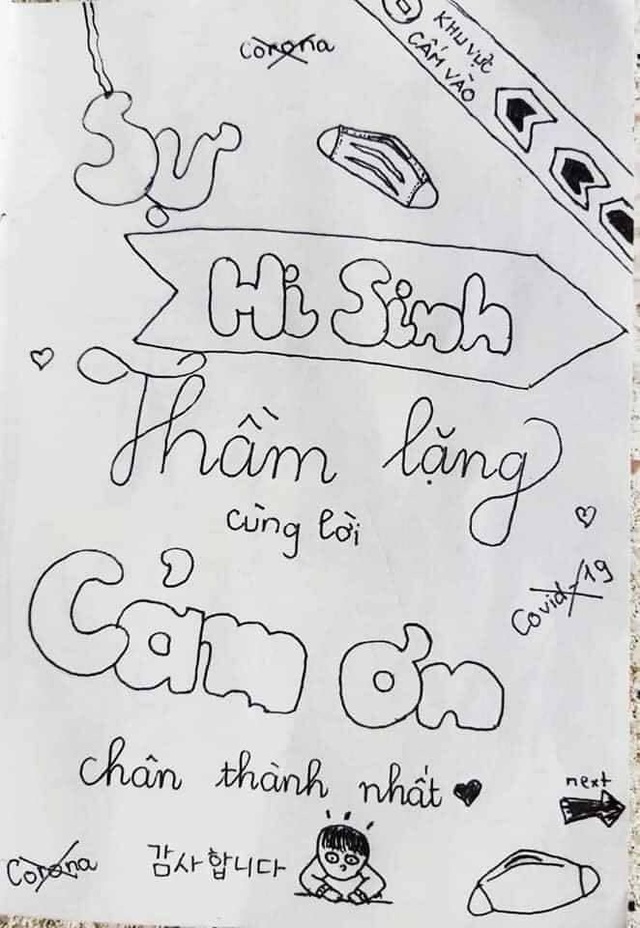 Corona
KHU VỰC
CẤM VÀO
Sự
Hi Sinh
Thầm lặng
cùng lời
Covid-19
Cảm ơn
chân thành nhất
next
Corona
감사합니다